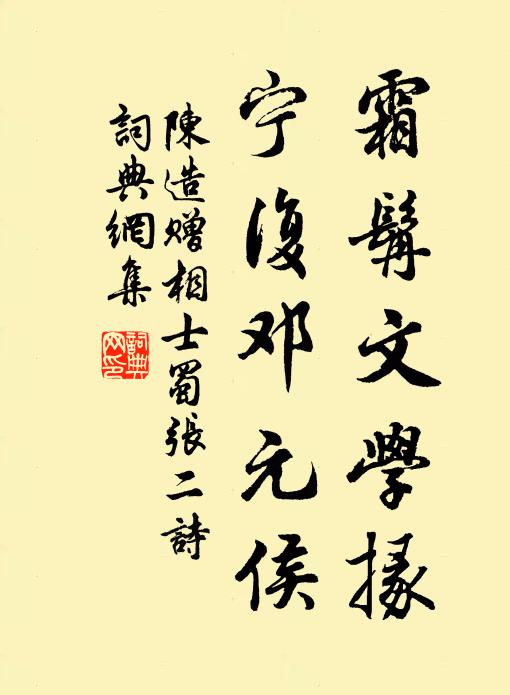 霜髯文學掾
宁復邓元侯
陳造赠相士蜀張二詩
詞典網集
詞典网印